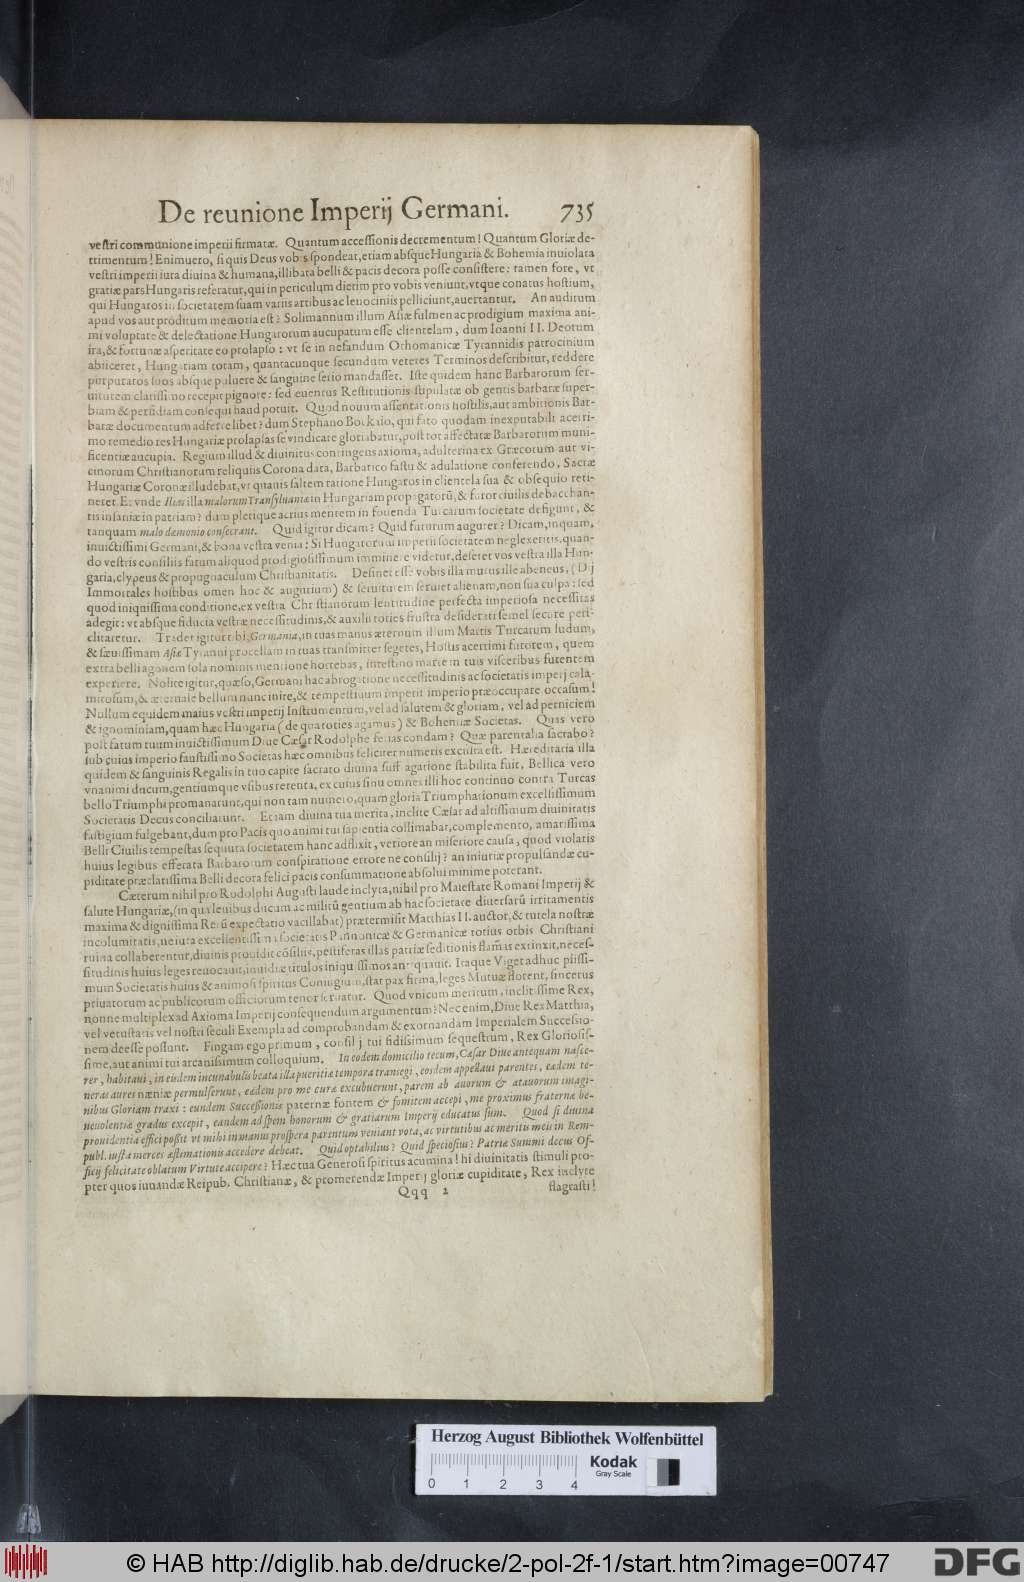 De reunione Imperij Germani. 735
vestri communione imperii firmatæ. Quantum accessionis decrementum! Quantum Gloriæ de-
trimentum! Enimuero, si quis Deus vobis spondeat, etiam absque Hungaria & Bohemia inuiolata
vestri imperii iura diuina & humana, illibata belli & pacis decora posse consistere: tamen fore, vt
gratiæ pars Hungaris referatur, qui in periculum dierim pro vobis veniunt, vtque conatus hostium,
qui Hungaros in societatem suam variis artibus ac lenociniis pelliciunt, auertantur. An auditum
apud vos aut proditum memoria est? Solimannum illum Asiæ fulmen ac prodigium maxima ani-
mi voluptate & delectatione Hungarorum aucupatum esse clientelam, dum Ioanni II. Deorum
ira, & fortunæ asperitate eo prolapso: vt se in nefandum Othomanicæ Tyrannidis patrocinium
abiiceret, Hungariam totam, quantacunque secundum veteres Terminos describitur, reddere
purpuratos suos absque puluere & sanguine serio mandasset. Iste quidem hanc Barbarorum ser-
uitutem clarissimo recepit pignore: sed euentus Restitutionis stipulatæ ob gentis barbaræ super-
biam & perfidiam consequi haud potuit. Quod nouum assentationis hostilis, aut ambitionis Bar-
baræ documentum adferre libet? dum Stephano Botskaio, qui fato quodam inexputabili acerri-
mo remedio res Hungariæ prolapsas se vindicare gloriabatur, post tot affectatæ Barbarorum muni-
ficentiæ aucupia. Regium illud & diuinitus contingens axioma, adulterina ex Græcorum aut vi-
cinorum Christianorum reliquiis Corona data, Barbarico fastu & adulatione conferendo, Sacræ
Hungariæ Coronæ illudebat, vt quauis saltem ratione Hungaros in clientela sua & obsequio reti-
neret. Et vnde Ilias illa malorum Transsyluaniæ in Hungariam propagatorū, & furor ciuilis debacchan-
tis insaniæ in patriam? dum plerique acrius mentem in fouenda Turcarum societate defigunt, &
tanquam malo dæmonio consecrant. Quid igitur dicam? Quid futurum augurer? Dicam, inquam,
inuictissimi Germani, & bona vestra venia: Si Hungarorum imperii societatem neglexeritis, quan-
do vestris consiliis fatum aliquod prodigiosissimum imminere videtur, deseret vos vestra illa Hun-
garia, clypeus & propugnaculum Christianitatis. Desinet esse vobis illa murus ille aheneus, (Dij
Immortales hostibus omen hoc & augurium) & seruitutem seruiet alienam, non sua culpa: sed
quod iniquissima conditione, ex vestra Christianorum lentitudine perfecta imperiosa necessitas
adegit: vt absque fiducia vestræ necessitudinis, & auxilii toties frustra desiderati semel secure peri-
clitaretur. Tradet igitur tibi, Germania, in tuas manus æternum illum Martis Turcarum ludum,
& sæuissimam Asiæ Tyranni procellam in tuas transmittet segetes, Hostis acerrimi furorem, quem
extra belli agonem sola nominis mentione horrebas, intestino marte in tuis visceribus furentem
experiere. Nolite igitur, quæso, Germani hac abrogatione necessitudinis ac societatis imperij cala-
mitosum, & æternale bellum nunc inire, & tempestiuum imperii imperio præoccupare occasum!
Nullum equidem maius vestri imperij Instrumentum, vel ad salutem & gloriam, vel ad perniciem
& ignominiam, quam hæc Hungaria (de qua toties agamus) & Bohemiæ Societas. Quas vero
post fatum tuum inuictissimum Diue Cæsar Rodolphe ferias condam? Quæ parentalia sacrabo?
sub cuius imperio faustissimo Societas hæc omnibus feliciter numeris exculta est. Hæreditaria illa
quidem & sanguinis Regalis in tuo capite sacrato diuina suffragatione stabilita fuit, Bellica vero
vnanimi ducum, gentiumque vsibus retenta, ex cuius sinu omnes illi hoc continuo contra Turcas
bello Triumphi promanarunt, qui non tam numero, quam gloria Triumphationum excelsissimum
Societatis Decus conciliarunt. Etiam diuina tua merita, inclite Cæsar ad altissimum diuinitatis
fastigium fulgebant, dum pro Pacis quo animi tui sapientia collimabat, complemento, amarissima
Belli Ciuilis tempestas sequuta societatem hanc adflixit, vtriore an miseriore causa, quod violatis
huius legibus efferata Barbarorum conspiratione errore ne consilij? an iniuriæ propulsandæ cu-
piditate præclarissima Belli decora felici pacis consummatione absolui minime poterant.
Cæterum nihil pro Rodolphi Augusti laude inclyta, nihil pro Maiestate Romani Imperij &
salute Hungariæ, (in qua leuibus ducum ac militū gentium ab hac societate diuersarū irritamentis
maxima & dignissima Rerū expectatio vacillabat) prætermisit Matthias II. auctor, & tutela nostræ
incolumitatis, ne iura excellentissima societatis Pannonicæ & Germanicæ totius orbis Christiani
ruina collaberentur, diuinis prouidit cōsiliis, pestiferas illas patriæ seditionis flam̄as extinxit, neces-
situdinis huius leges reuocauit, inuidiæ titulos iniquissimos antiquauit. Itaque Viget adhuc piissi-
mum Societatis huius & animosi spiritus Coniugium, stat pax firma, leges Mutuæ florent, sincerus
priuatorum ac publicorum officiorum tenor seruatur. Quod vnicum meritum, inclitissime Rex,
nonne multiplex ad Axioma Imperij consequendum argumentum? Nec enim, Diue Rex Matthia,
vel vetustatis vel nostri seculi Exempla ad comprobandam & exornandam Imperialem Successio-
nem deesse possunt. Fingam ego primum, consilij tui fidissimum sequestrum, Rex Gloriosis-
sime, aut animi tui arcanissimum colloquium. In eodem domicilio tecum, Cæsar Diue antequam nasce-
rer, habitaui, in eisdem incunabulis beata illa pueritiæ tempora transegi, eosdem appellaui parentes, eædem te-
neras aures næniæ permulserunt, eædem pro me curæ excubuerunt, parem ab auorum & atauorum imagi-
nibus Gloriam traxi: eundem Successionis paternæ fontem & fomitem accepi, me proximus fraternæ be-
neuolentiæ gradus excepit, eandem ad spem honorum & gratiarum Imperij educatus sum. Quod si diuina
prouidentia effici possit vt mihi in manus prospera parentum veniant vota, ac virtutibus ac meritis meis in Rem-
publ. iusta merces æstimationis accedere debeat. Quid optabilius? Quid speciosius? Patriæ Summi decus Of-
ficij felicitate oblatum Virtute accipere? Hæc tua Generosi spiritus acumina! hi diuinitatis stimuli pro-
pter quos iuuandæ Reipub. Christianæ, & promerendæ Imperij gloriæ cupiditate, Rex inclyte
Qqq 2 flagrasti!
Herzog August Bibliothek Wolfenbüttel
Kodak
Gray Scale
0 1 2 3 4
© HAB http://diglib.hab.de/drucke/2-pol-2f-1/start.htm?image=00747
DFG